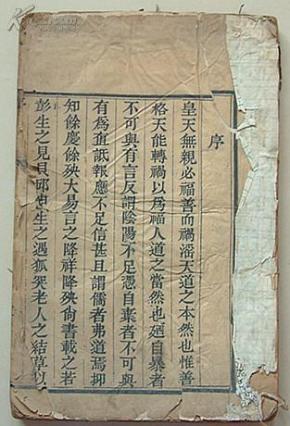 序
皇天無親必福善而禍滛天道之本然也惟善
格天能轉禍以爲福人道之當然也廼自暴者
不可與有言反謂陰陽不足憑自棄者不可與
有爲直詆報應不足信甚且謂儒者弗道焉抑
知餘慶餘殃大易言之降祥降殃尚書載之若
彭生之見貝邱忠生之遇狐突老人之結草以
序